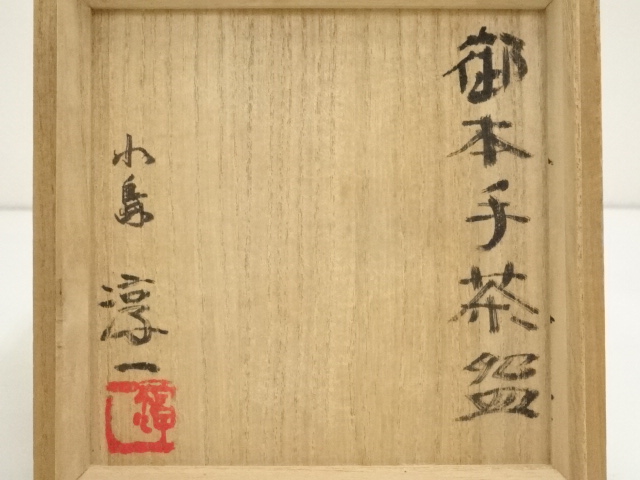 御本手茶盌
小島 淳一